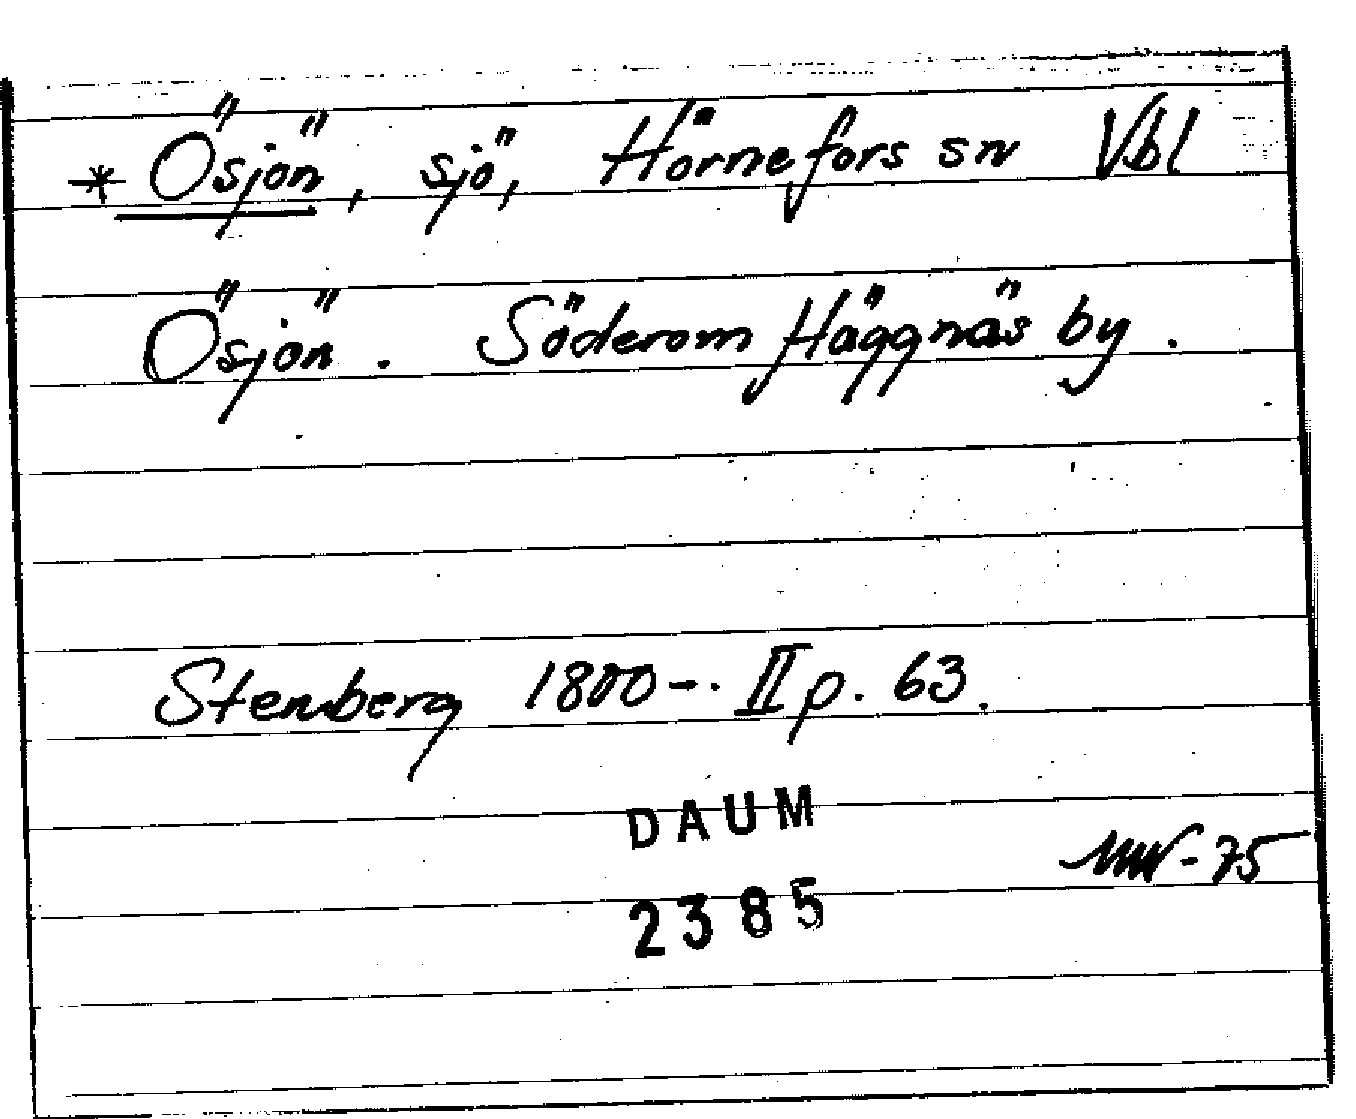 * Ösjön, sjö, Hörnefors sn Vbl
Ösjön. Söderom Häggnäs by.
Stenberg 1800-. II p. 63.
DAUM
2385
-75